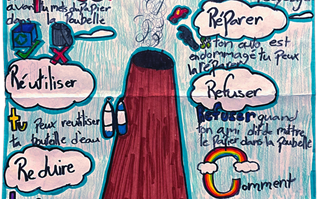 avant tu mets du papier
dans la poubelle
Réutiliser
tu peux reutiliser
ta bouteille d'eau
Reduire
Réparer
Si ton auto est
endommagé tu peux
la réparer
Refuser
Refuser quand
ton ami dit de mettre
le papier dans la poubelle
Comment